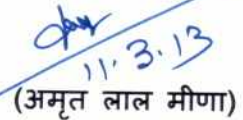 11.3.13
(अमृत लाल मीणा)